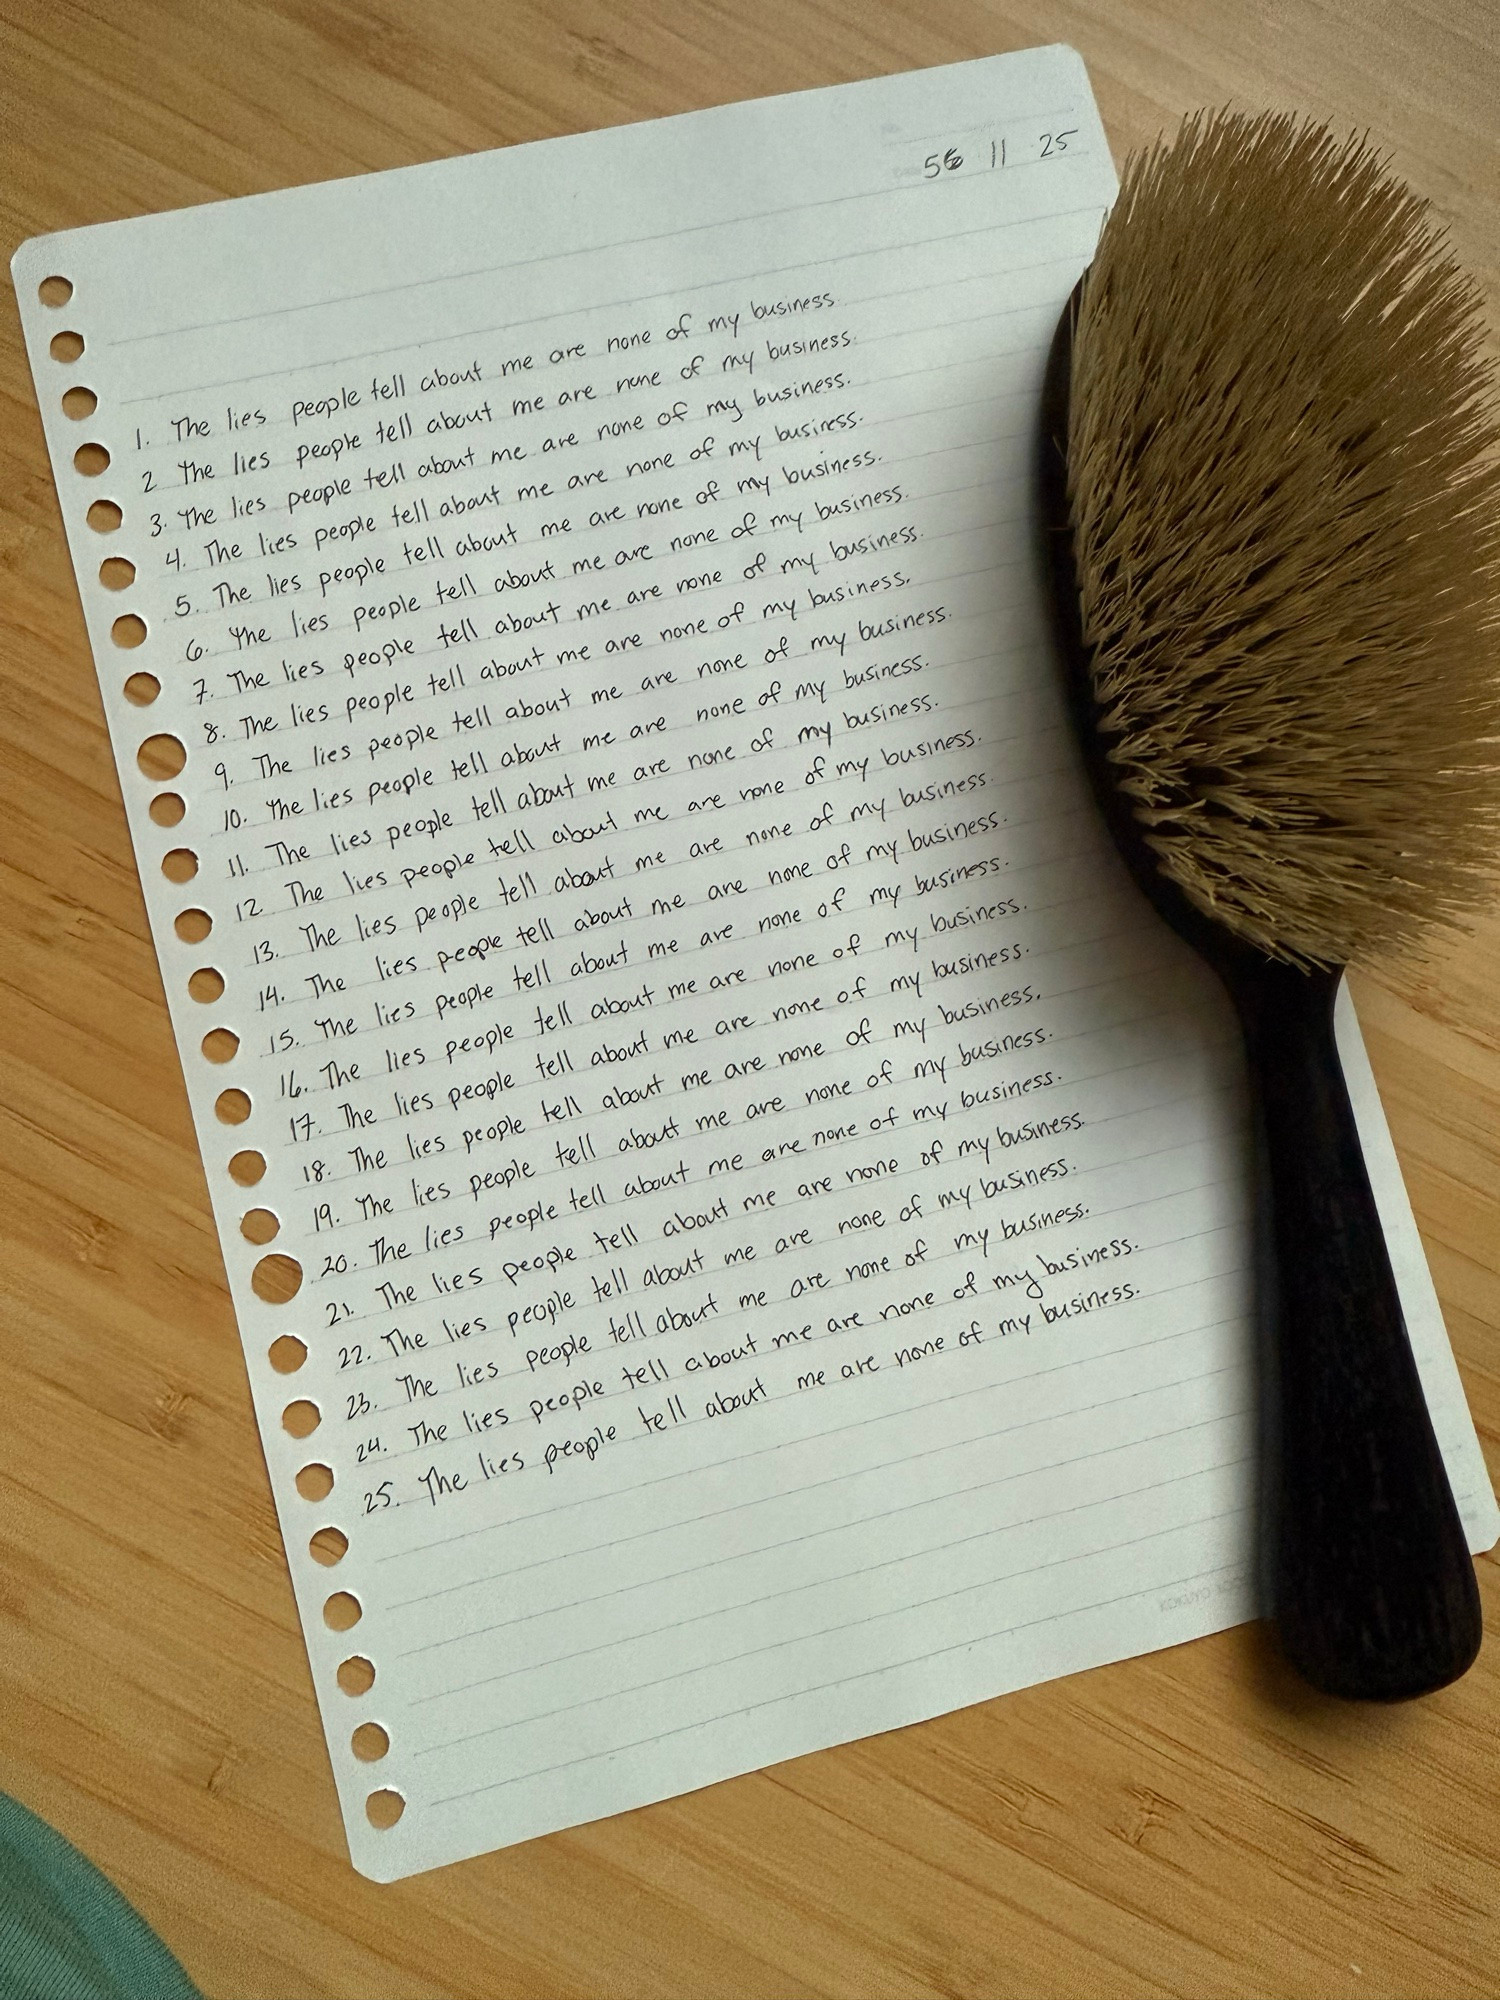 56 11 25
1. The lies people tell about me are none of my business.
2 The lies people tell about me are none of my business.
3. The lies people tell about me are none of my business.
4. The lies people tell about me are none of my business.
5. The lies people tell about me are none of my business.
6. The lies people tell about me are none of my business.
7. The lies people tell about me are none of my business.
8. The lies people tell about me are none of my business.
9. The lies people tell about me are none of my business.
10. The lies people tell about me are none of my business.
11. The lies people tell about me are none of my business.
12 The lies people tell about me are none of my business.
13. The lies people tell about me are none of my business.
14. The lies people tell about me are none of my business.
15. The lies people tell about me are none of my business.
16. The lies people tell about me are none of my business.
17. The lies people tell about me are none of my business.
18. The lies people tell about me are none of my business.
19. The lies people tell about me are none of my business.
20. The lies people tell about me are none of my business.
21. The lies people tell about me are none of my business.
22. The lies people tell about me are none of my business.
23. The lies people tell about me are none of my business.
24. The lies people tell about me are none of my business.
25. The lies people tell about me are none of my business.